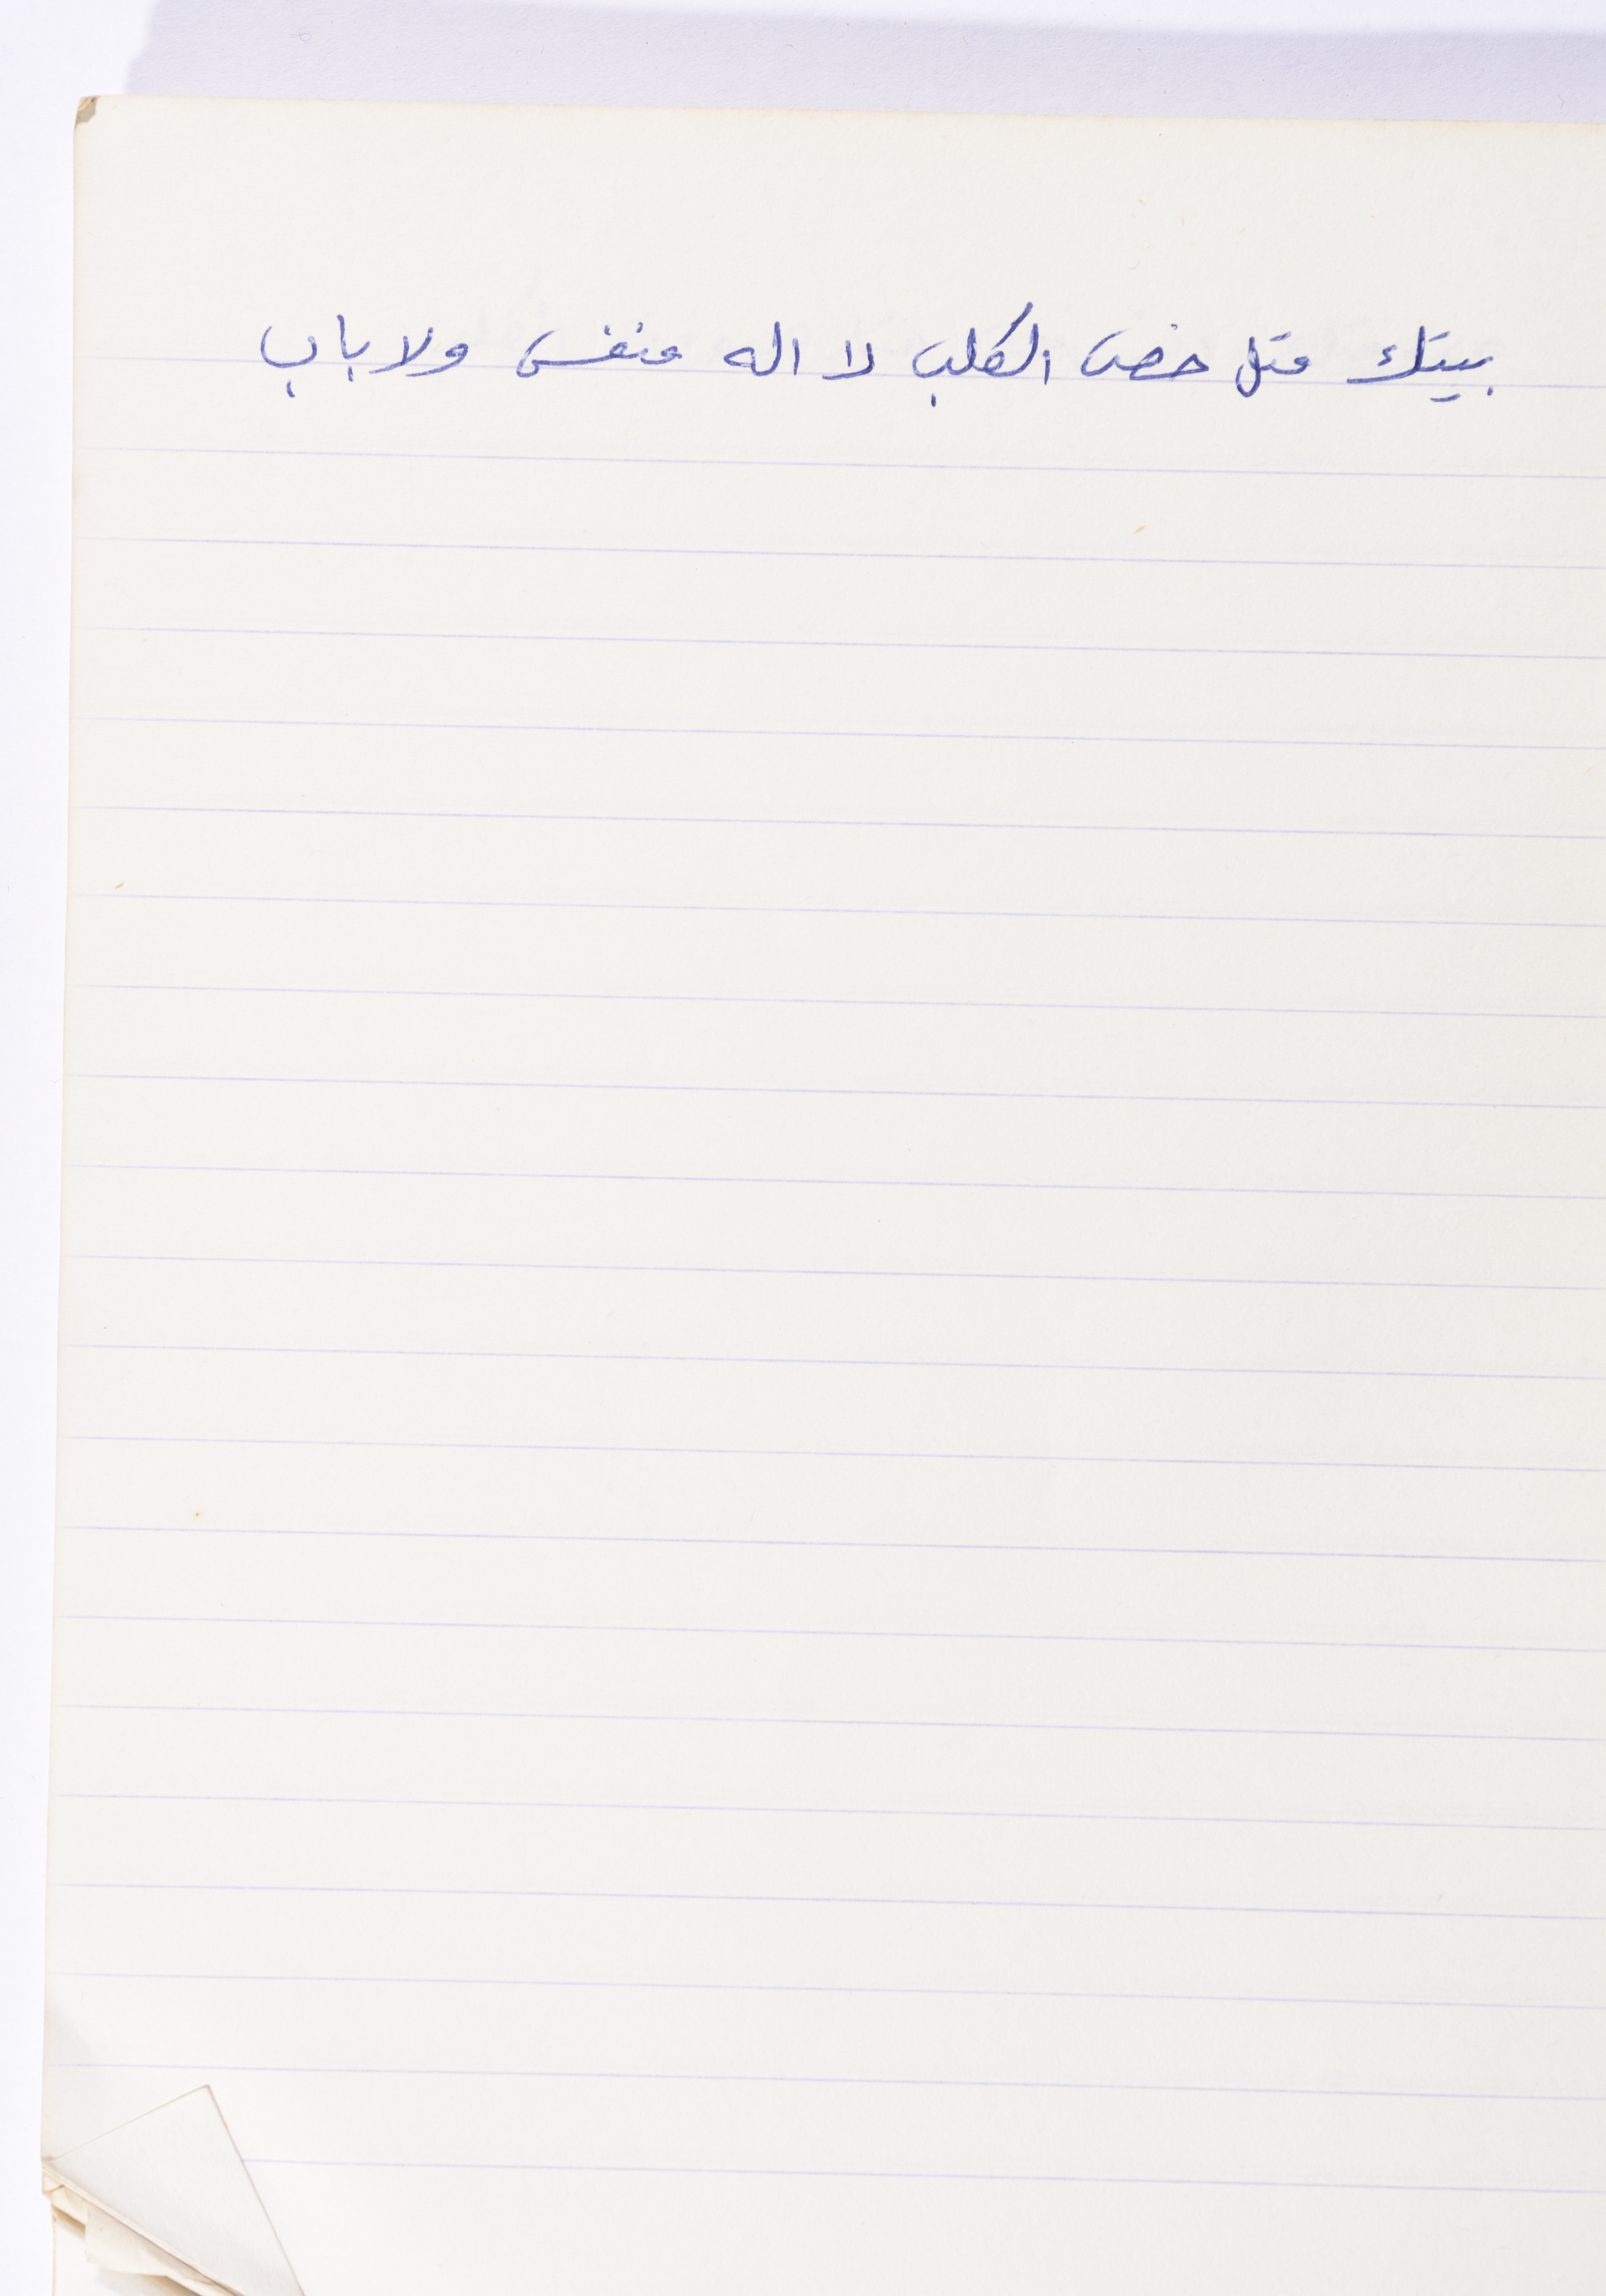 بيتك متل خص الكلب لا اله منفس ولا باب